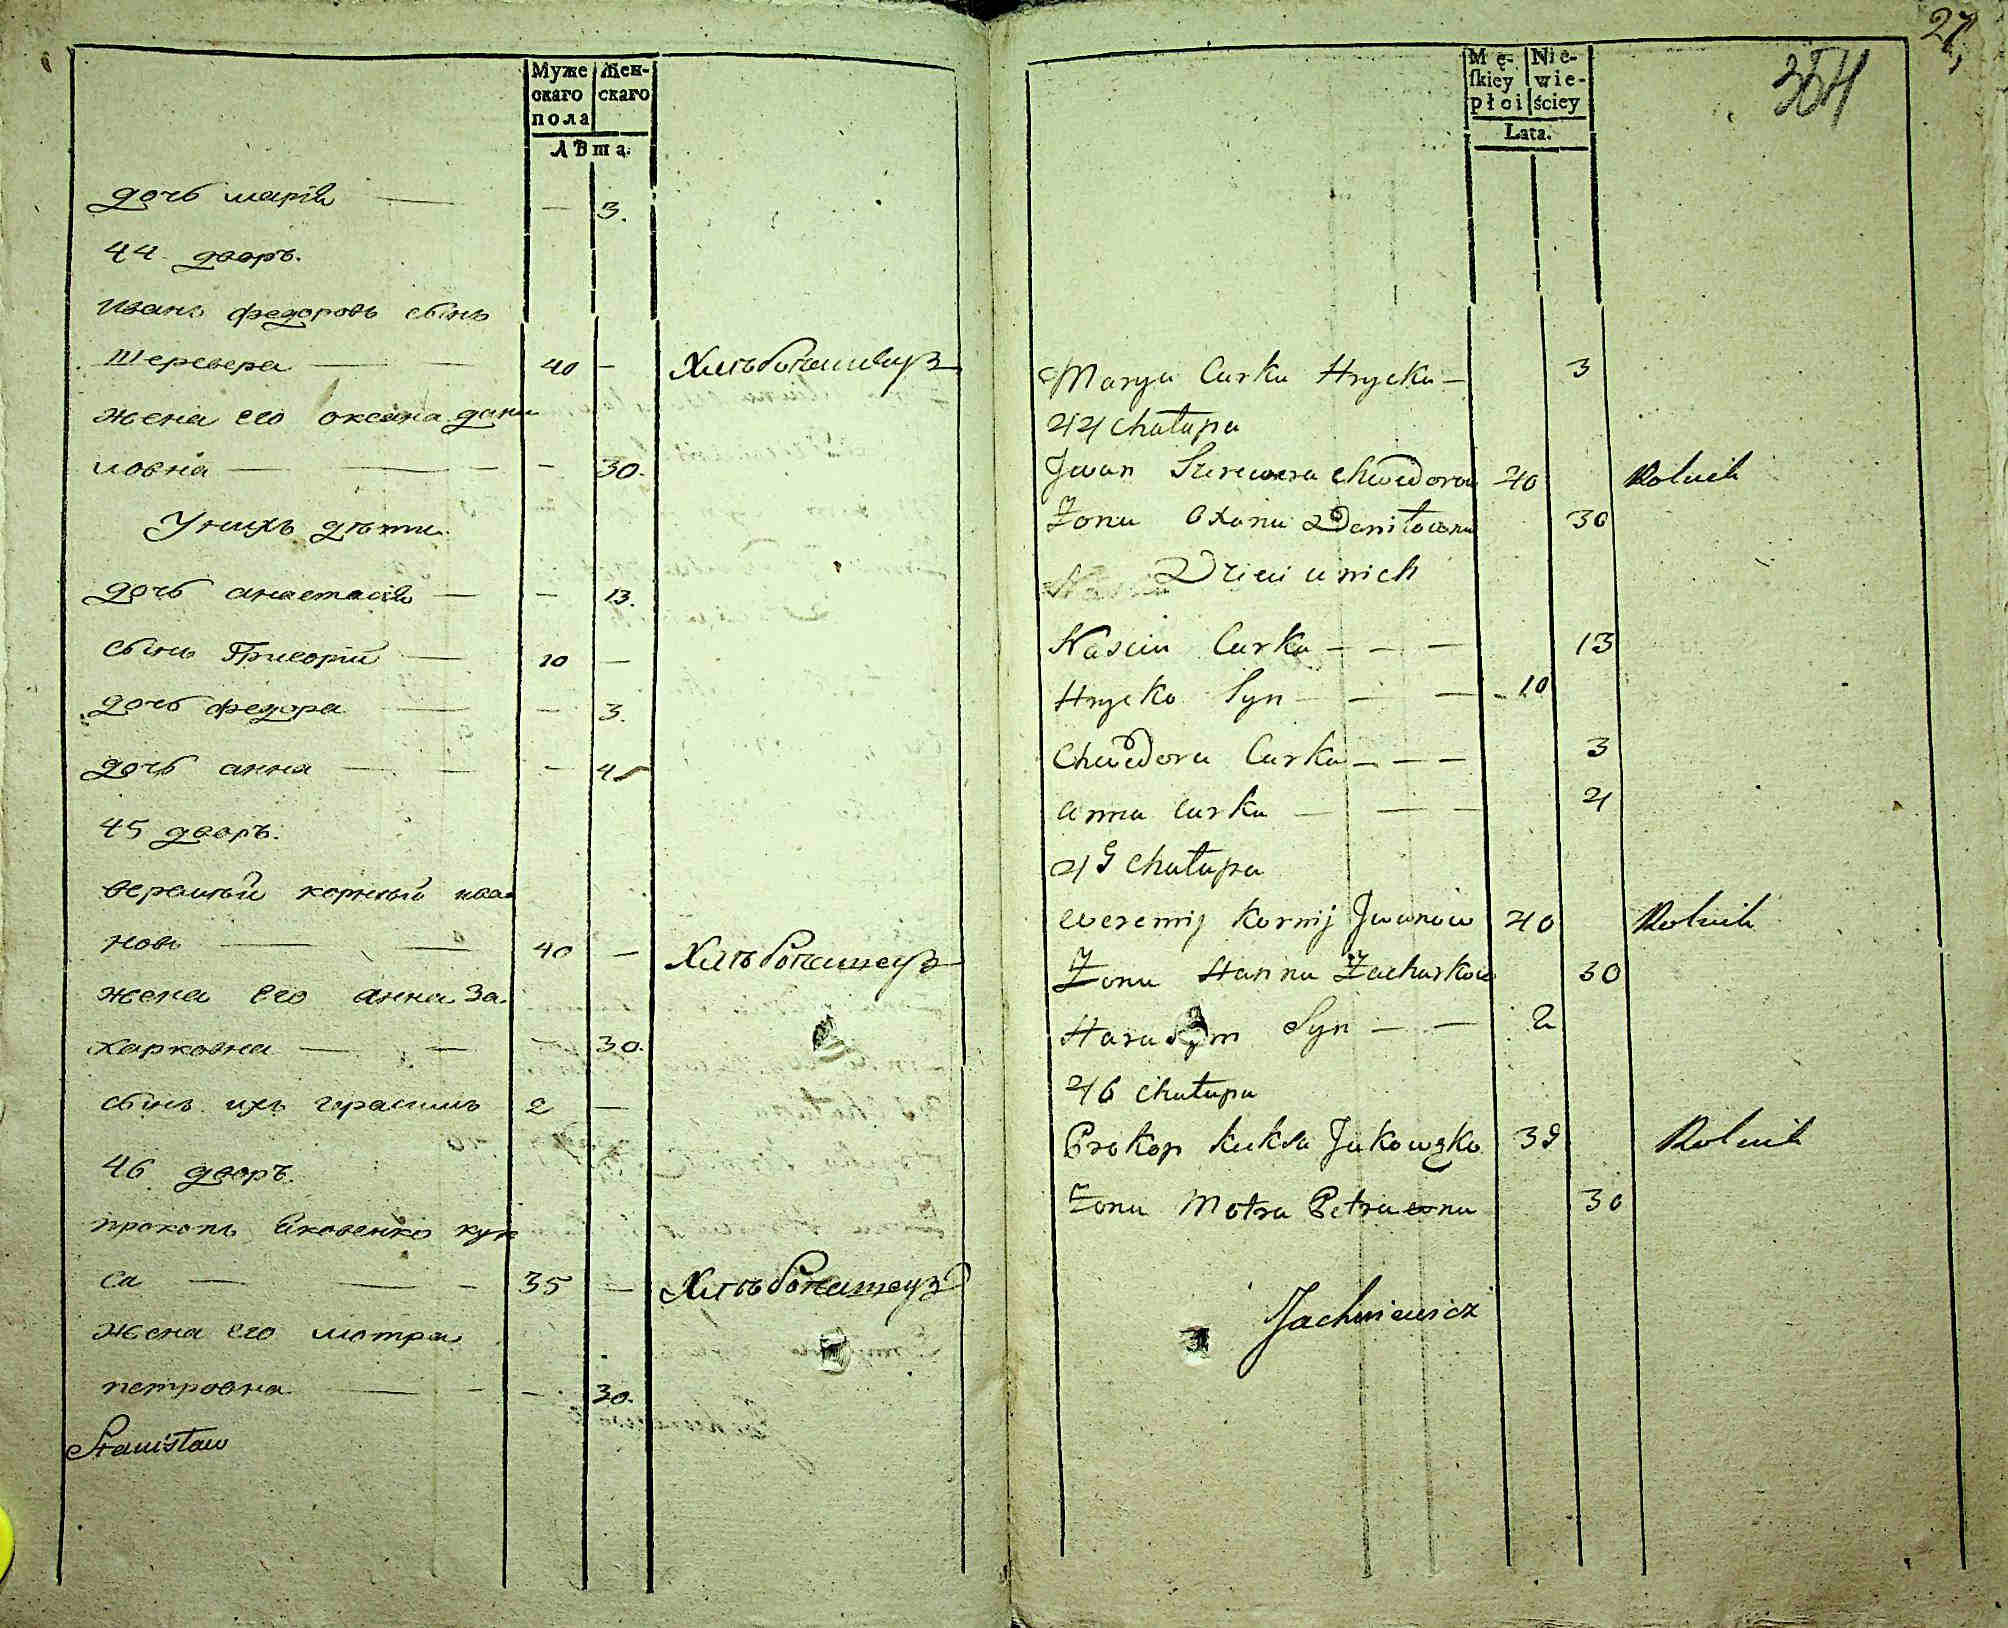 Муже Жен-
скаго скаго
пола
Лѣта.
дочь марія — — 3.
44 дворъ.
иванъ федоровъ сынъ
Шеревера — — 40 — Хлѣбопашецъ
жена его оксана дани
ловна — — — — 30.
Унихъ дѣти
дочь анастасія — — 13.
сынъ Григорій — 10 —
дочь федора — — 3.
дочь анна — — — 4
45 дворъ.
веремѣй корнѣй ива
новъ — — 40 — Хлѣбопашецъ
жена его анна за.
харковна — — — 30.
сынъ ихъ герасимъ 2 —
46 дворъ.
прокопъ яковенко кук
са — — — 35 — Хлѣбопашецъ
жена его мотра
петровна — — — 30.
Stanisław
27
354
Mę- Nie-
ſkiey wie-
płci ściey
Lata.
Marya Curka Hrycka — 3
44 chałupa
Jwan Szerewera Chwedorow 40 Rolnik
Żona Oxana Daniłowna 30
Dzieci u nich
Nascia Curka — — — 13
Hrycko Syn — — — 10
Chwedora Curka — — — 3
Anna Curka — — — 4
45 chałupa
Weremij Kornij Jwanow 40 Rolnik
Żona Hanna Zacharkow 30
Harasym Syn — — 2
46 chałupa
Prokop Kuksa Jakowenko 35 Rolnik
Żona Motra Petrowna 30
Jachniewicz